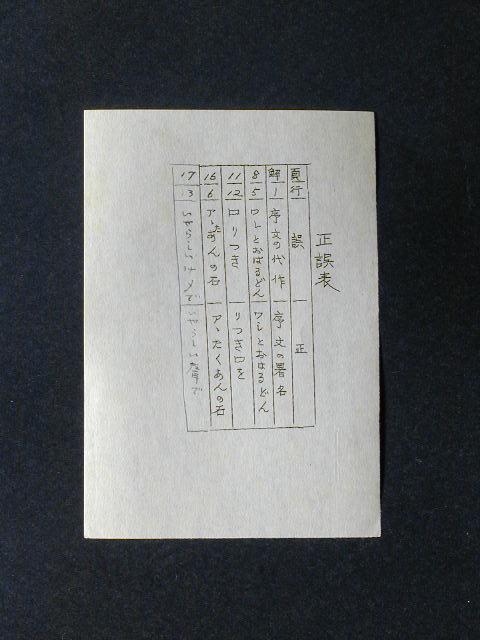 正誤表
頁 行 誤 正
解 1 序文の代作 序文の署名
8 5 ワレとおはるどん ワレとおはるどん
11 12 口りつき りつき口を
15 6 アヽたあんの石 アヽたくあんの石
17 13 いやらしい で いやらしい で